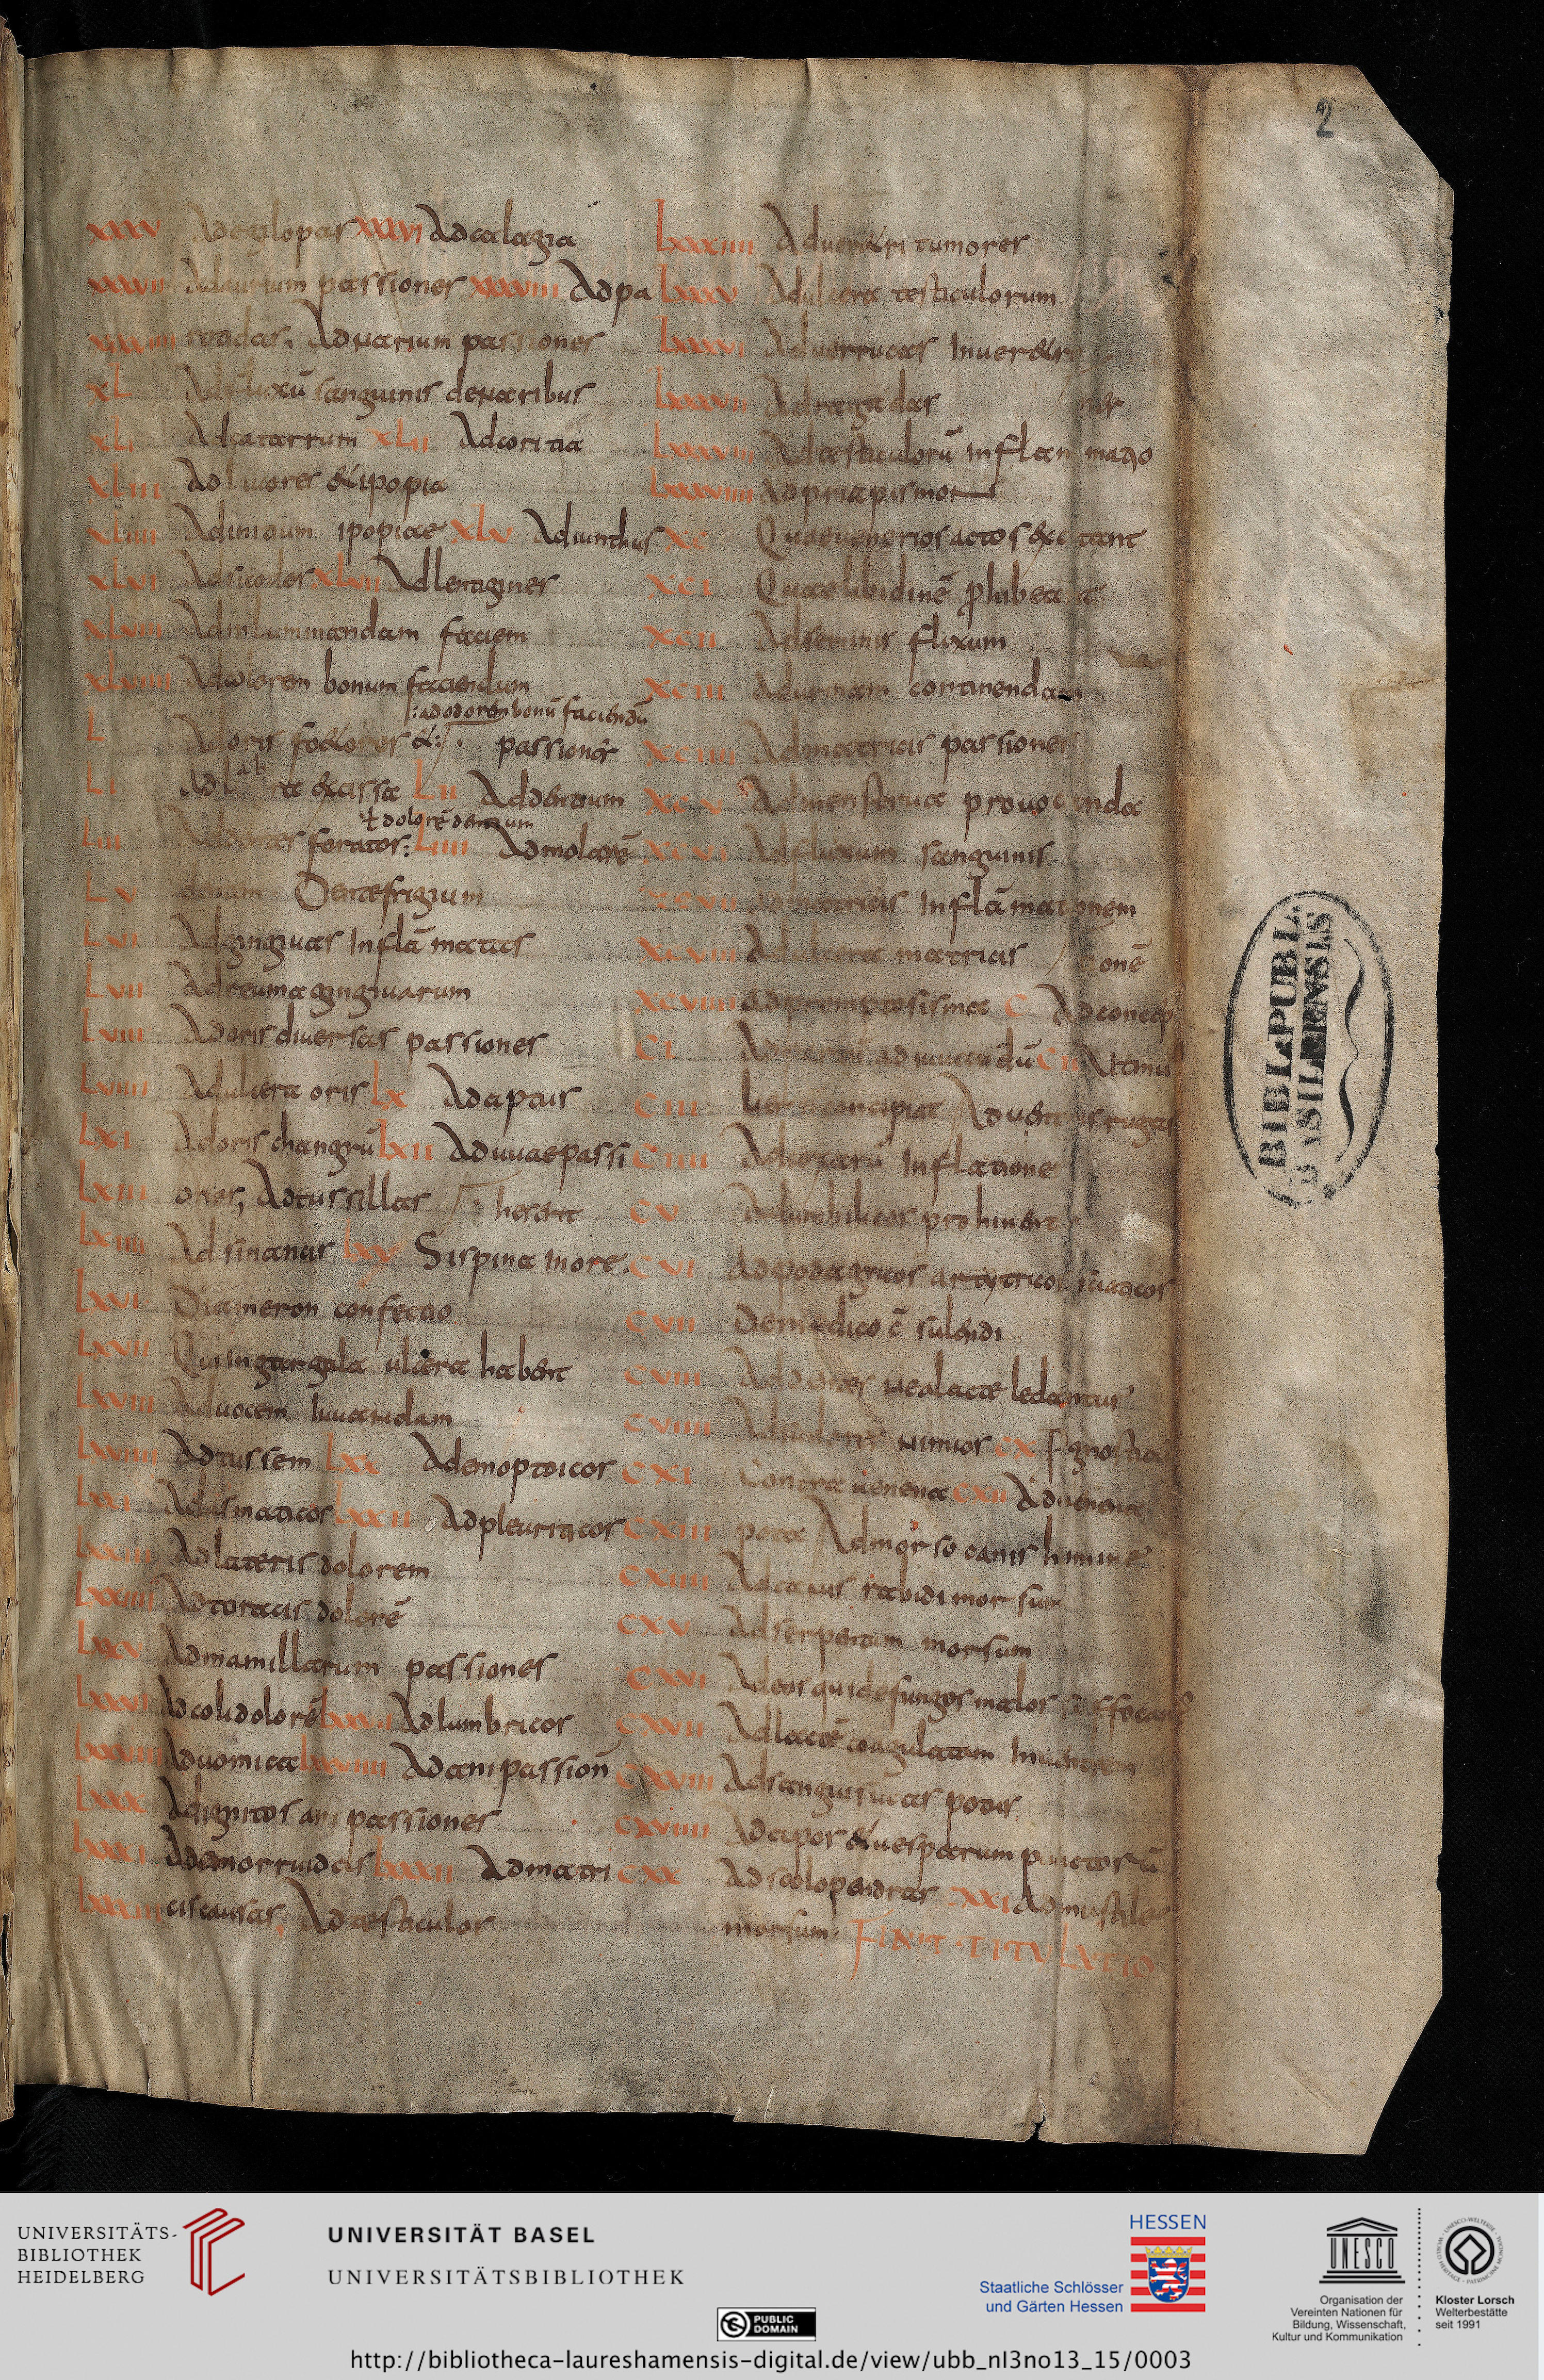 2
xxxv Ad egilopas xxxvi Ad calagia
xxxvii Ad aurium passiones xxxviii Ad pa
xxxviiii rotidas. Ad narium passiones
xL Ad fluxū sanguinis de naribus
xLi Ad catarrum xLii Ad coritia
xLiii Ad livores & ipopia
xLiiii Ad initium ipopiae xLv Ad iunthus
xLvi Ad sicodes xLvii Ad lentigines
xLviii Ad inluminandam faciem
xLviiii Ad colorem bonum faciendum
:ad odorem bonū faciendū
L Ad oris foetores &: passiones
Li Ad labra excissa Lii Ad dentium
ł dolorē dentium
Liii Ad dentes foratos: Liiii Ad molarē
Lv Dentefrigium
Lvi Ad gingivas inflāmatas
Lvii Ad reuma gingivarum
Lviii Ad oris diversas passiones
Lviiii Ad ulcera oris Lx Ad aptais
Lxi Ad oris changrū Lxii Ad uvae passi
Lxiii ones, Ad tussillas heserit
Lxiiii Ad sinancis Lxv Si spina in ore.
Lxvi Diameron confectio
Lxvii Qui in gargala ulcera habent
Lxviii Ad vocem iuvandam
Lxviiii Ad tussem Lxx Ad emoptoicos
Lxxi Ad asmaticos Lxxii Ad pleuriticos
Lxxiii Ad lateris dolorem
Lxxiiii Ad toracis dolorē
Lxxv Ad mamillarum passiones
Lxxvi Ad coli dolorē Lxxvii Ad lumbricos
Lxxviii Ad vomica Lxxviiii Ad ani passion
Lxxx Ad ignitos ani passiones
Lxxxi Ad emorruidas Lxxxii Ad matri
Lxxxiii cis causas. Ad testiculor
Lxxxiiii Ad veretri tumores
Lxxxv Ad ulcera testiculorum
Lxxxvi Ad verrucas in veretro
Lxxxvii Ad ragadas nes
Lxxxviii Ad testiculorū inflam matio
Lxxxviiii Ad priapismon
xc Quae venerios actos excitant
xci Quae libidinē p̱hibeant
xcii Ad seminis fluxum
xciii Ad urinam continendam
xciiii Ad matricis passiones
xcv Ad menstrua provocanda
xcvi Ad fluxum sanguinis
xcvii Ad matricis inflāmationem
xcviii Ad ulcera matricis tionē
xcviiii Ad promptosisma c Ad concep
ci Ad partū adiuvandū cii Ut mu
ciii lier concipiat Ad ventris rugas
ciiii Ad coxarū inflatione
cv Ad umbilicos prominentes
cvi Ad podagricos artyticos sciaticos
cvii De medico c̄sulendi
cviii Ad dentes ne a lacte ledantur
cviiii cx
cxi Contra venena cxii Ad venena
cxiii pota Ad morso canis homine
cxiiii Ad canis rabidi morsum
cxv Ad serpentium morsum
cxvi Ad eos qui de fungos malos suffocantur
cxvii Ad lactē coagulatam in ventrem
cxviii Ad sanguisucas potas.
cxviiii Ad apos & vesparum punctosū
cxx Ad scolopendras cxxi Ad mustile
morsum. FINIT TITULATIO
BIBL. PUBL.
BASILEENSIS
UNIVERSITÄTS-
BIBLIOTHEK
HEIDELBERG
UNIVERSITÄT BASEL
UNIVERSITÄTSBIBLIOTHEK
PUBLIC
DOMAIN
HESSEN
Staatliche Schlösser
und Gärten Hessen
UNESCO
Organisation der
Vereinten Nationen für
Bildung, Wissenschaft,
Kultur und Kommunikation
Kloster Lorsch
Welterbestätte
seit 1991
http://bibliotheca-laureshamensis-digital.de/view/ubb_nI3no13_15/0003